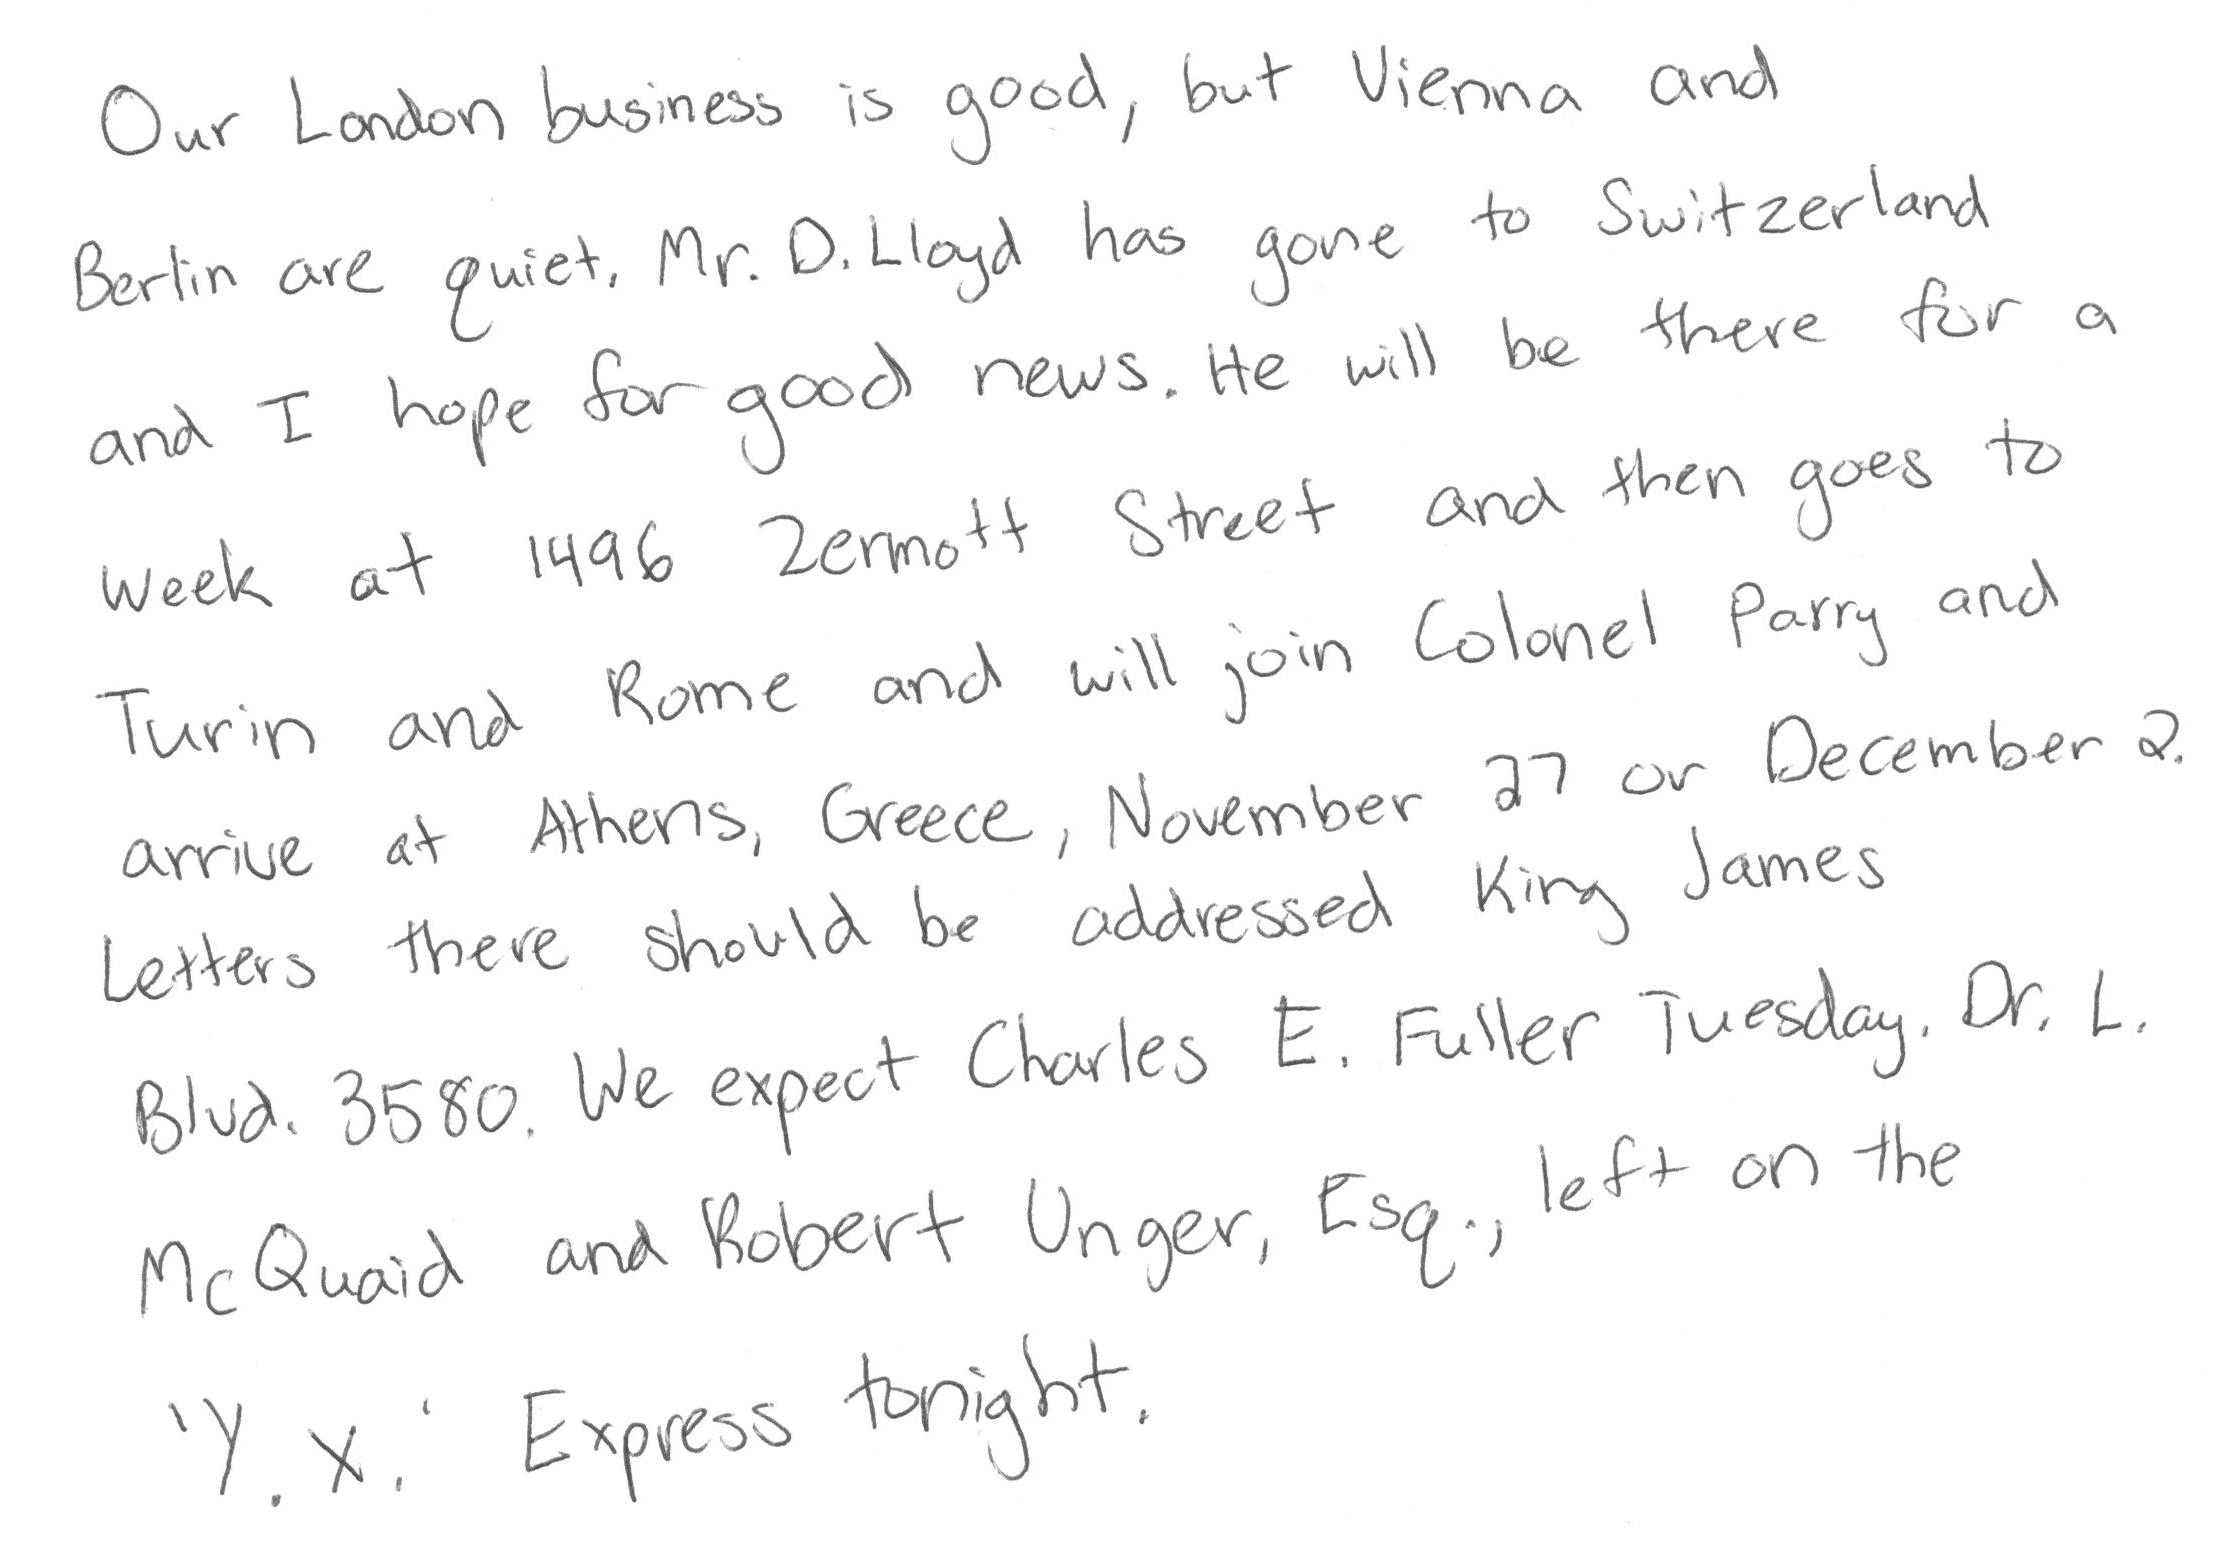 Our London business is good, but Vienna and
Berlin are quiet. Mr. D. Lloyd has gone to Switzerland
and I hope for good news. He will be there for a
week at 1496 Zermott Street and then goes to
Turin and Rome and will join Colonel Parry and
arrive at Athens, Greece, November 27 or December 2.
Letters there should be addressed King James
Blvd. 3580. We expect Charles E. Fuller Tuesday. Dr. L.
McQuaid and Robert Unger, Esq., left on the
'Y. X.' Express tonight.